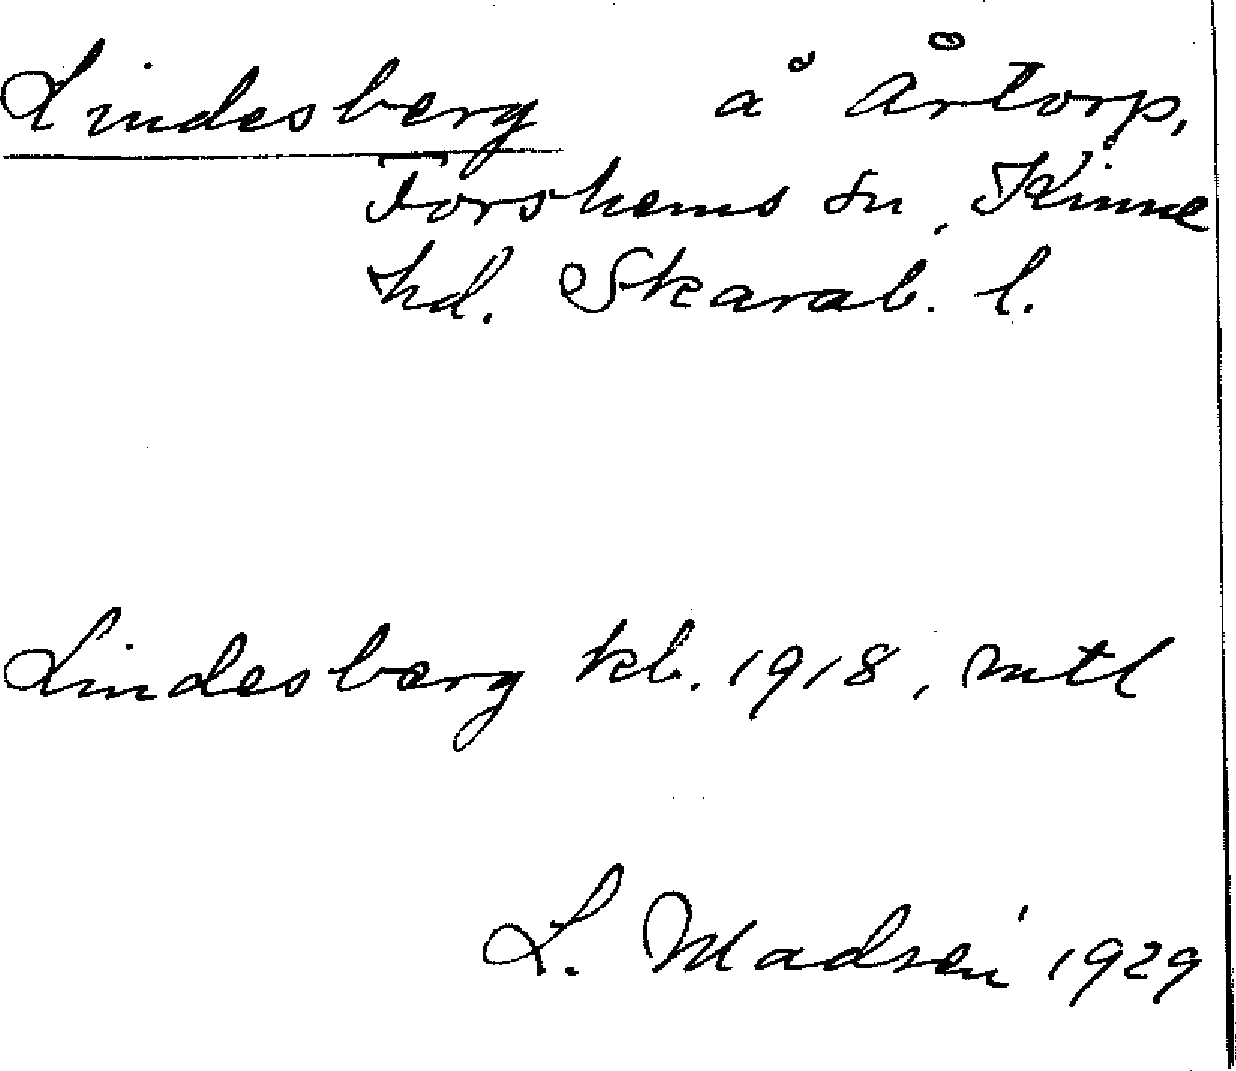 Lindesberg å Årtorp,
Forshems sn, Kinne
hd. Skarab. l.
Lindesberg kb. 1918, mtl
L. Madsén 1929